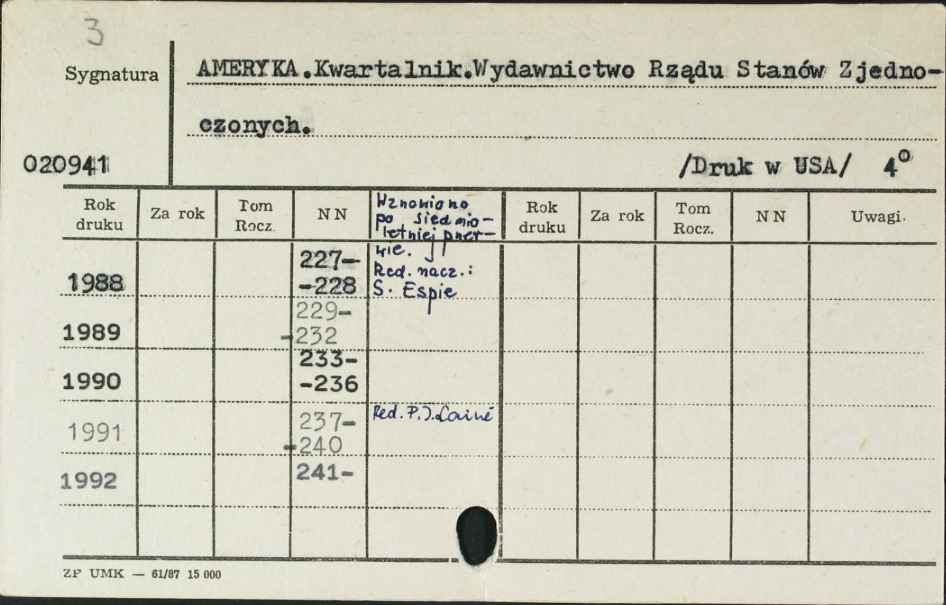 3
Sygnatura
AMERYKA.Kwartalnik.Wydawnictwo Rządu Stanów Zjedno-
czonych.
020941
/Druk w USA/ 4°
Rok druku Za rok Tom Rocz. NN Rok druku Za rok Tom Rocz. NN Uwagi.
Wznowiono
po siedmio-
letniej przer-
wie.
Red. nacz.:
S. Espie
1988 227-
-228
1989 229-
-232
1990 233-
-236
1991 237- Red. P.J. Lainé
-240
1992 241-
ZP UMK — 61/87 15 000